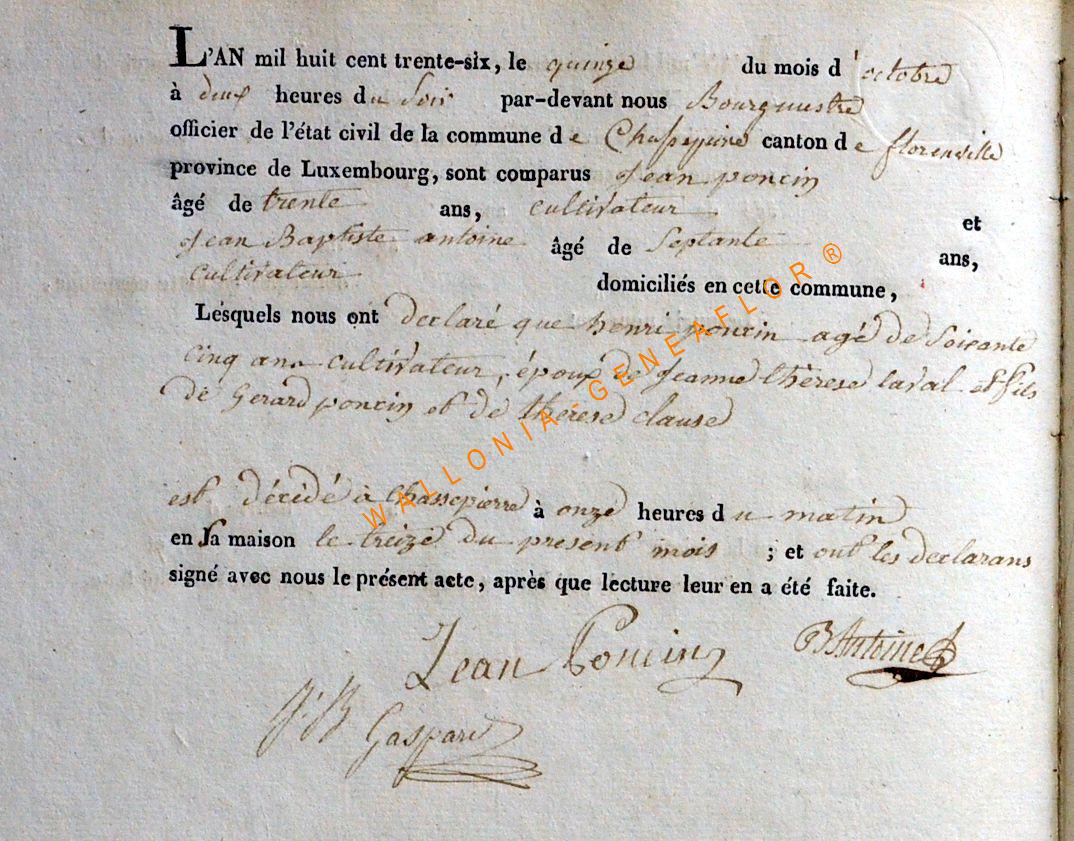 L'AN mil huit cent trente-six, le quinze du mois d'octobre
à deux heures du Soir par-devant nous Bourguestre
officier de l'état civil de la commune de Chassepierre canton de florenville
province de Luxembourg, sont comparus Jean poncin
âgé de trente ans, cultivateur et
Jean Baptiste antoine âgé de Septante ans,
cultivateur domiciliés en cette commune,
Lésquels nous ont declaré que henri poncin agé de Soixante
cinq ans cultivateur, époux de Jeanne thèrese laval et fils
de Gerard poncin et de thérese clause
est décédé à Chassepierre à onze heures du matin
en sa maison le treize du present mois ; et ont les declarans
signé avec nous le présent acte, après que lecture leur en a été faite.
Jean Poncin B Antoine
J: B Gaspard
WALLONIA-GENEAFLOR®